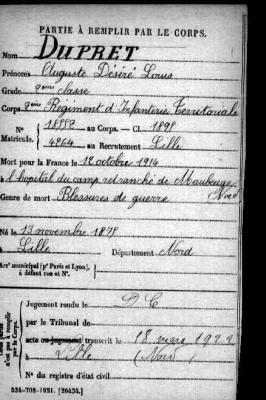 PARTIE À REMPLIR PAR LE CORPS.
Nom DUPRET
Prénoms Auguste Désiré Louis
Grade 2ème classe
Corps Régiment d'Infanterie Territoriale
N° au Corps. — Cl. 1898
Matricule. 4264 au Recrutement Lille
Mort pour la France le 12 octobre 1914
à l'hôpital du camp retranché de Maubeuge
Nord
Genre de mort Blessures de guerre
Né le 13 novembre 1878
à Lille Département Nord
Arr' municipal (pr Paris et Lyon),
à défaut rue et N°.
Jugement rendu le D C
par le Tribunal de
acte ou jugement transcrit le 18 mars
à Lille (Nord)
N° du registre d'état civil
Cette partie n'est pas à remplir par le Corps.
534-708-1921. [26434.]